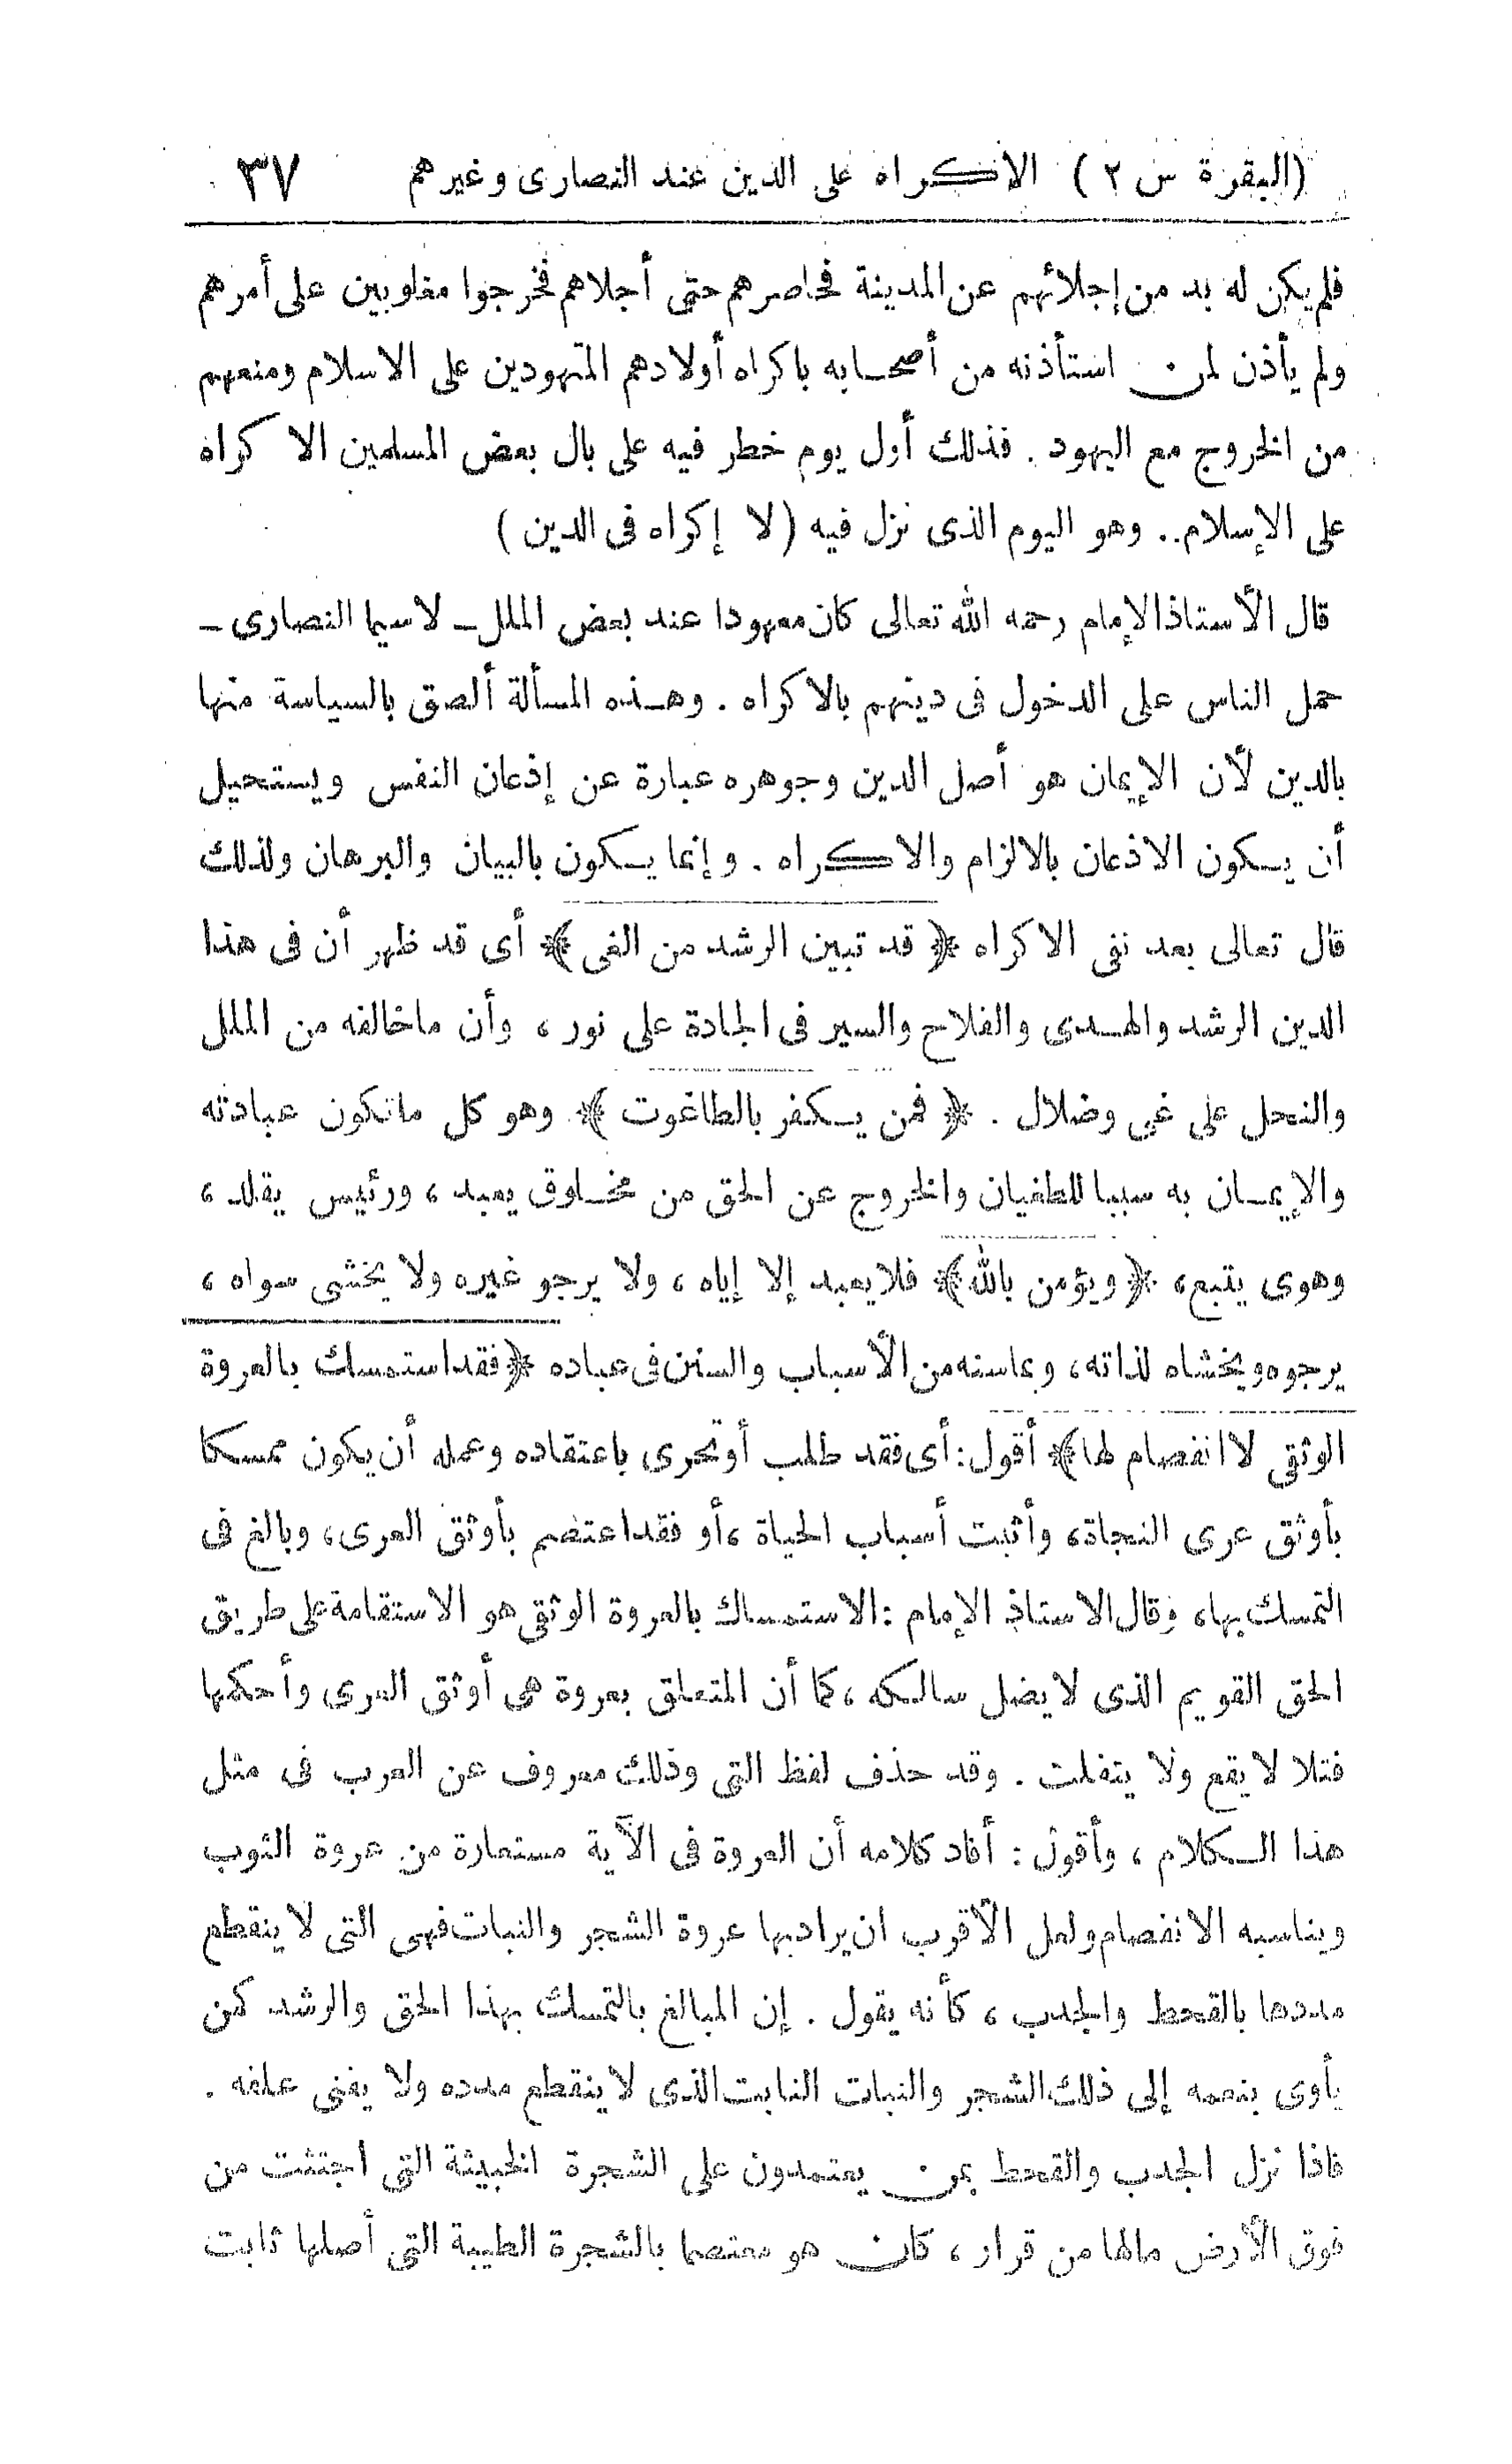 (البقرة س ٢) الاكراه على الدين عند النصارى وغيرهم ٣٧
فلم يكن له بد من إجلائهم عن المدينة فحاصرهم حتى أجلاهم فخرجوا مغلوبين على أمرهم
ولم يأذن لمن استأذنه من أصحابه باكراه أولادهم المتهودين على الاسلام ومنعهم
من الخروج مع اليهود . فذلك أول يوم خطر فيه على بال بعض المسلمين الاكراه
على الإسلام.. وهو اليوم الذى نزل فيه (لا إكراه فى الدين)
قال الأستاذ الإمام رحمه الله تعالى كان معهودا عند بعض الملل ـ لاسيما النصارى ـ
حمل الناس على الدخول فى دينهم بالاكراه . وهذه المسألة ألصق بالسياسة منها
بالدين لأن الإيمان هو أصل الدين وجوهره عبارة عن إذعان النفس ويستحيل
أن يكون الاذعان بالالزام والاكراه . وإنما يكون بالبيان والبرهان ولذلك
قال تعالى بعد نفى الاكراه ﴿ قد تبين الرشد من الغى ﴾ أى قد ظهر أن فى هذا
الدين الرشد والهدى والفلاح والسير فى الجادة على نور ، وأن ماخالفه من الملل
والنحل على غى وضلال . ﴿ فمن يكفر بالطاغوت ﴾ وهو كل ماتكون عبادته
والإيمان به سببا للطغيان والخروج عن الحق من مخلوق يعبد ، ورئيس يقلد ،
وهوى يتبع، ﴿ ويؤمن بالله﴾ فلايعبد إلا إياه ، ولا يرجو غيره ولا يخشى سواه ،
يرجوه ويخشاه لذاته، وبماسنه من الأسباب والسنن فى عباده ﴿فقد استمسك بالعروة
الوثقى لا انفصام لها﴾ أقول: أى فقد طلب أو تحرى باعتقاده وعمله أن يكون ممسكا
بأوثق عرى النجاة، وأثبت أسباب الحياة ، أو فقد اعتصم بأوثق العرى، وبالغ فى
التمسك بها، وقال الاستاذ الإمام : الاستمساك بالعروة الوثقى هو الاستقامة على طريق
الحق القويم الذى لايضل سالكه ، كما أن المتعلق بعروة هى أوثق العرى وأحكمها
فتلا لايقع ولا يتفلت . وقد حذف لفظ التى وذلك معروف عن العرب فى مثل
هذا الكلام ، وأقول : أفاد كلامه أن العروة فى الآية مستعارة من عروة الثوب
ويناسبه الانفصام ولعل الأقرب ان يراد بها عروة الشجر والنبات فهى التى لا ينقطع
مددها بالقحط والجدب ، كأنه يقول . إن المبالغ بالتمسك بهذا الحق والرشد كمن
يأوى بنعمه إلى ذلك الشجر والنبات الثابت الذى لاينقطع مدده ولا يفنى علفه .
فاذا نزل الجدب والقحط بمن يعتمدون على الشجرة الخبيثة التى اجتثت من
فوق الأرض مالها من قرار ، كان هو معتصما بالشجرة الطيبة التى أصلها ثابت